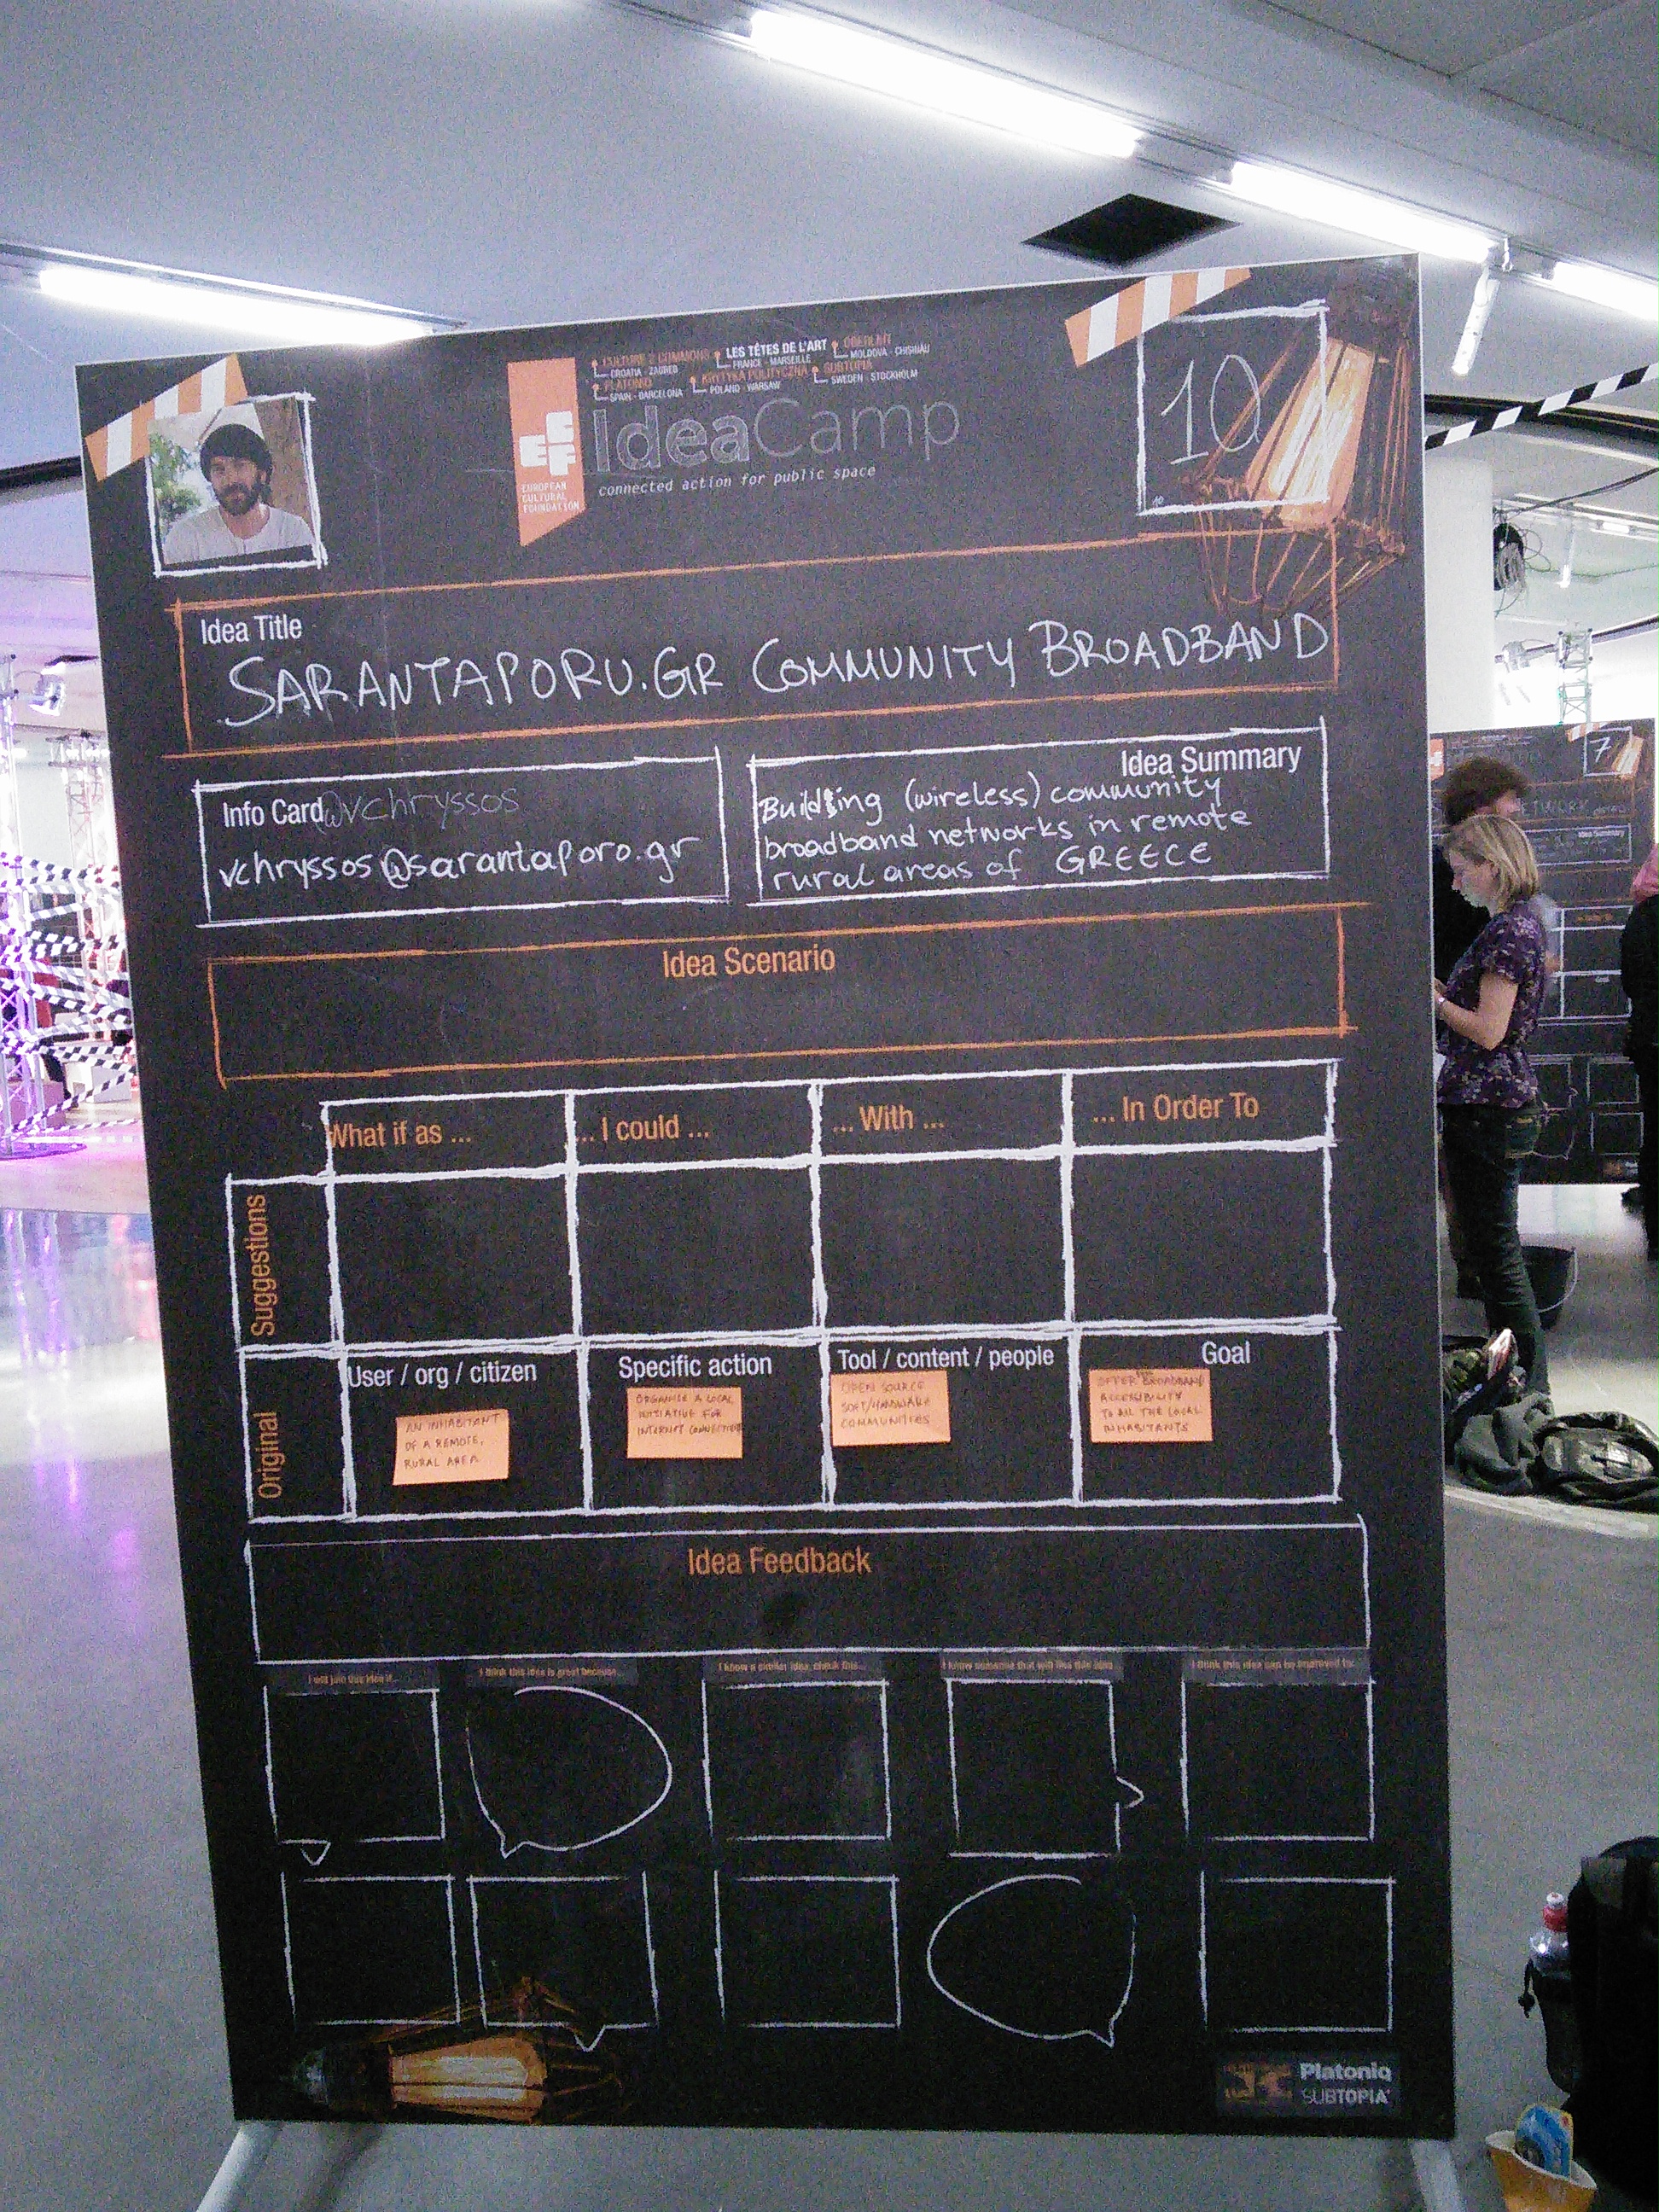 CULTURE 2 COMMONS
CROATIA - ZAGREB
LES TÊTES DE L'ART
FRANCE - MARSEILLE
OBERLIHT
MOLDOVA - CHISINAU
PLATONIQ
SPAIN - BARCELONA
KRYTYKA POLITYCZNA
POLAND - WARSAW
SUBTOPIA
SWEDEN - STOCKHOLM
ECF
EUROPEAN
CULTURAL
FOUNDATION
IdeaCamp
connected action for public space
10
10
Idea Title
SARANTAPORU.GR COMMUNITY BROADBAND
Info Card @vchryssos
vchryssos@sarantaporo.gr
Idea Summary
Building (wireless) community
broadband networks in remote
rural areas of GREECE
Idea Scenario
What if as ...
... I could ...
... With ...
... In Order To
Suggestions
Original
User / org / citizen
AN INHABITANT
OF A REMOTE,
RURAL AREA
Specific action
ORGANISE A LOCAL
INITIATIVE FOR
INTERNET CONNECTION
Tool / content / people
OPEN SOURCE
SOFT/HARDWARE
COMMUNITIES
Goal
OFFER BROADBAND
ACCESSIBILITY
TO ALL THE LOCAL
INHABITANTS
Idea Feedback
I will join this idea if...
I think this idea is great because...
I know a similar idea, check this...
I know someone that will like this idea
I think this idea can be improved by:
Platoniq
SUBTOPIA
7
NETWORK
Idea Summary